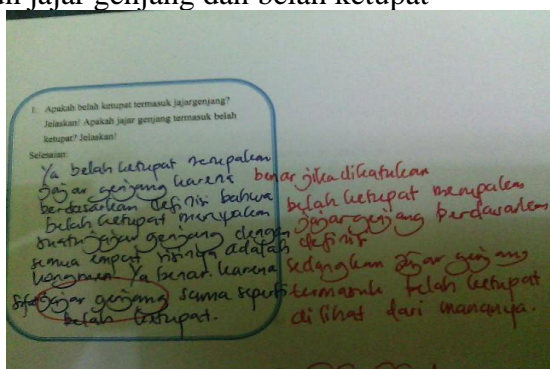 jajar genjang dan belah ketupat
1. Apakah belah ketupat termasuk jajargenjang?
Jelaskan! Apakah jajar genjang termasuk belah
ketupat? Jelaskan!
Selesaian:
Ya belah ketupat merupakan
jajar genjang karena
berdasarkan definisi bahwa
belah ketupat merupakan
suatu jajar genjang dengan
semua empat sisinya adalah
kongruen. Ya benar. karena
sifat jajar genjang sama seperti
belah ketupat.
benar jika dikatakan
belah ketupat merupakan
jajar genjang berdasarkan
definisi
sedangkan jajar genjang
termasuk belah ketupat
di lihat dari mananya.